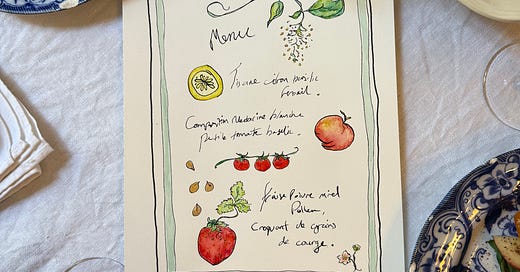 Menu
citron basilic
Fenouil.
Composition Nectarine blanche
petite tomate basilic.
fraise Poivre miel
Pollen,
Croquant de grains
de courge.